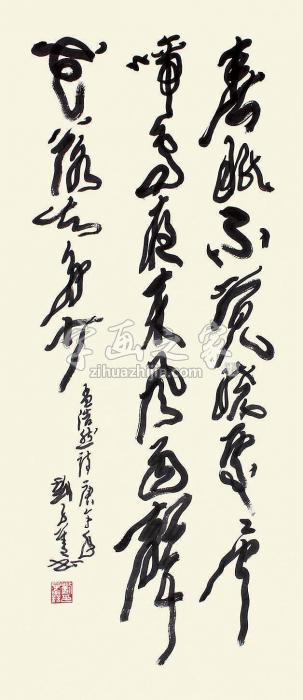 春眠不覺曉處々聞
啼鳥夜来風雨聲
花落知多少
孟浩然诗庚午年
字画之家
zihuazhijia.com